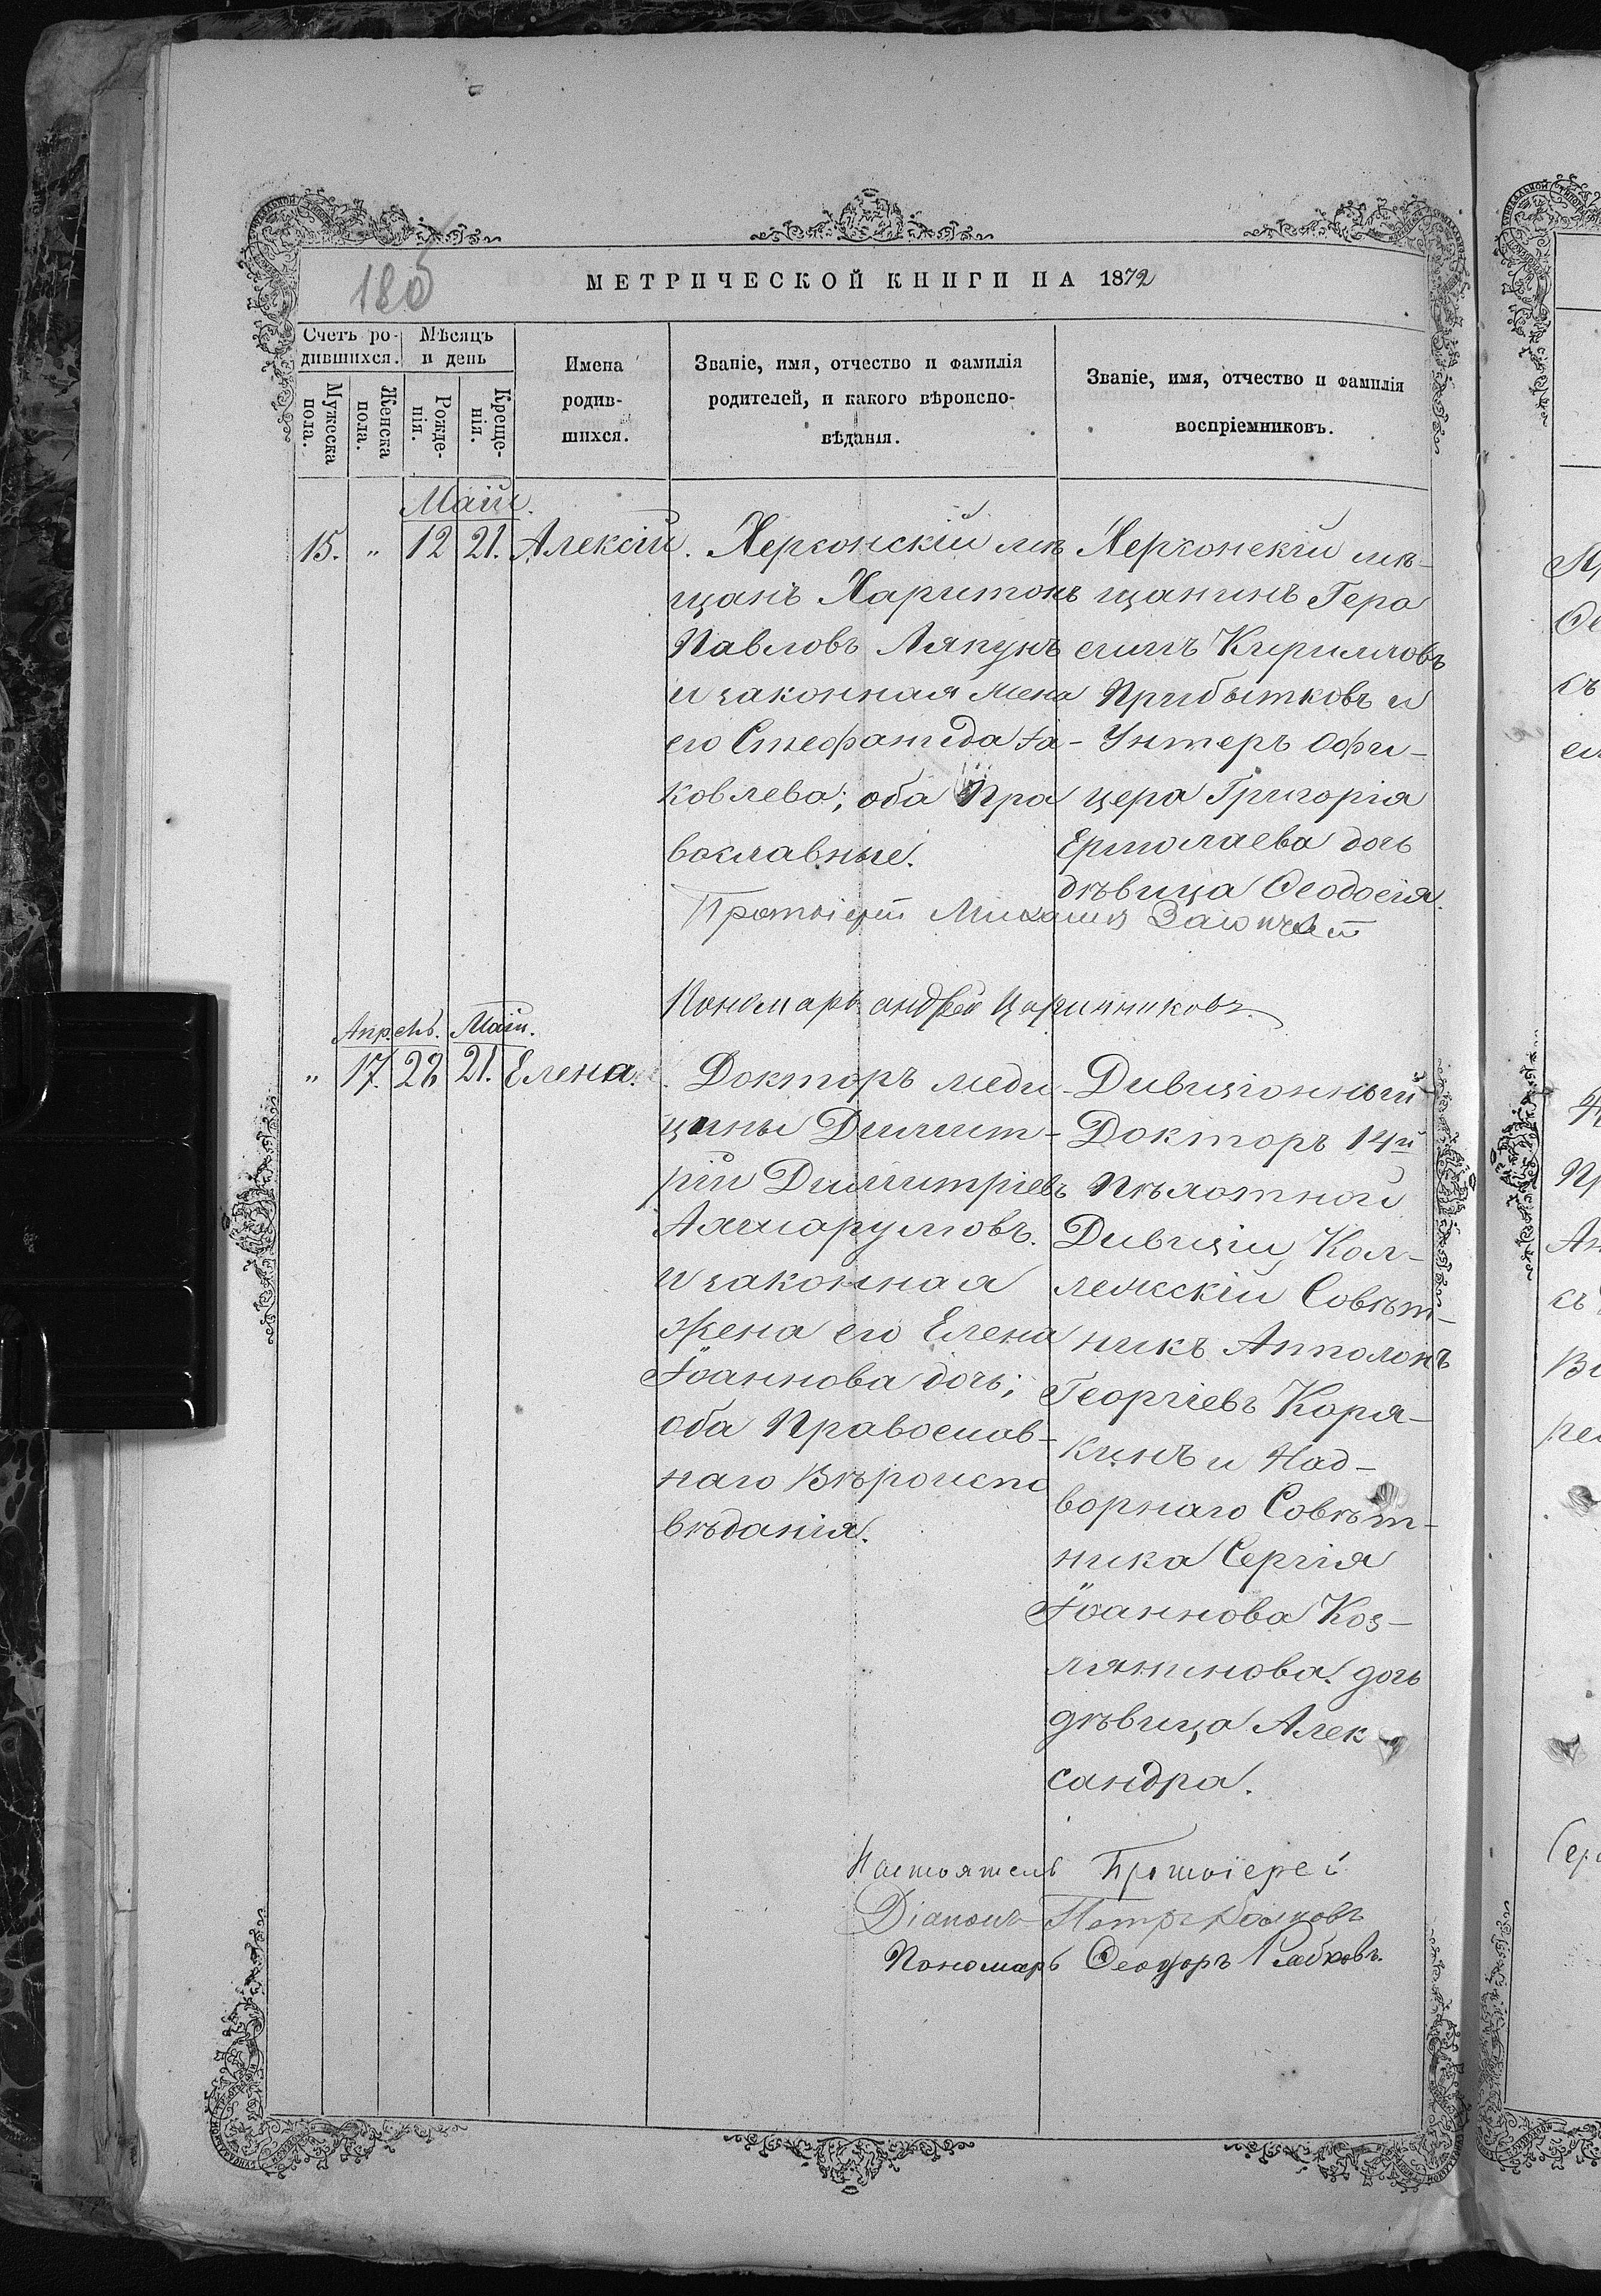 180
МЕТРИЧЕСКОЙ КНИГИ НА 1872
Счетъ ро-
дившихся.
Мѣсяцъ
и день
Мужеска
пола.
Женска
пола.
Рожде-
нія.
Креще-
нія.
Имена
родив-
шихся.
Званіе, имя, отчество и фамилія
родителей, и какого вѣроиспо-
вѣданія.
Званіе, имя, отчество и фамилія
воспріемниковъ.
Маій.
15. „ 12 21. Алексій.
Херсонскій мѣ
щанъ Харитонъ
Павловъ Ляпунъ
и законная жена
его Стефанида Іа-
ковлева; оба Пра
вославные.
Херсонскій мѣ-
щанинъ Гера
симъ Кирилловъ
Прибытковъ и
Унтеръ Офи-
цера Григорія
Ермолаева дочь
дѣвица Ѳеодосія.
Протоіерей Михаилъ
Пономарь андрей
Апрель. Маій.
„ 17. 28. 21. Елена.
Докторъ меди-
цины Димит-
рій Димитріевъ
Ахшарумовъ.
и законная
жена его Елена
Іоаннова дочь;
оба Православ-
наго Вѣроиспо
вѣданія.
Дивизіонный
Докторъ 14й
Пѣхотной
Дивизіи, Кол-
лежскій Совѣт-
никъ Апполонъ
Георгіевъ Коря-
кинъ и Над-
ворнаго Совѣт-
ника Сергія
Іоаннова Коз-
лянинова дочь
дѣвица Алек
сандра.
Настоятель Протоіерей
Діаконъ Петръ
Пономарь Ѳеодоръ